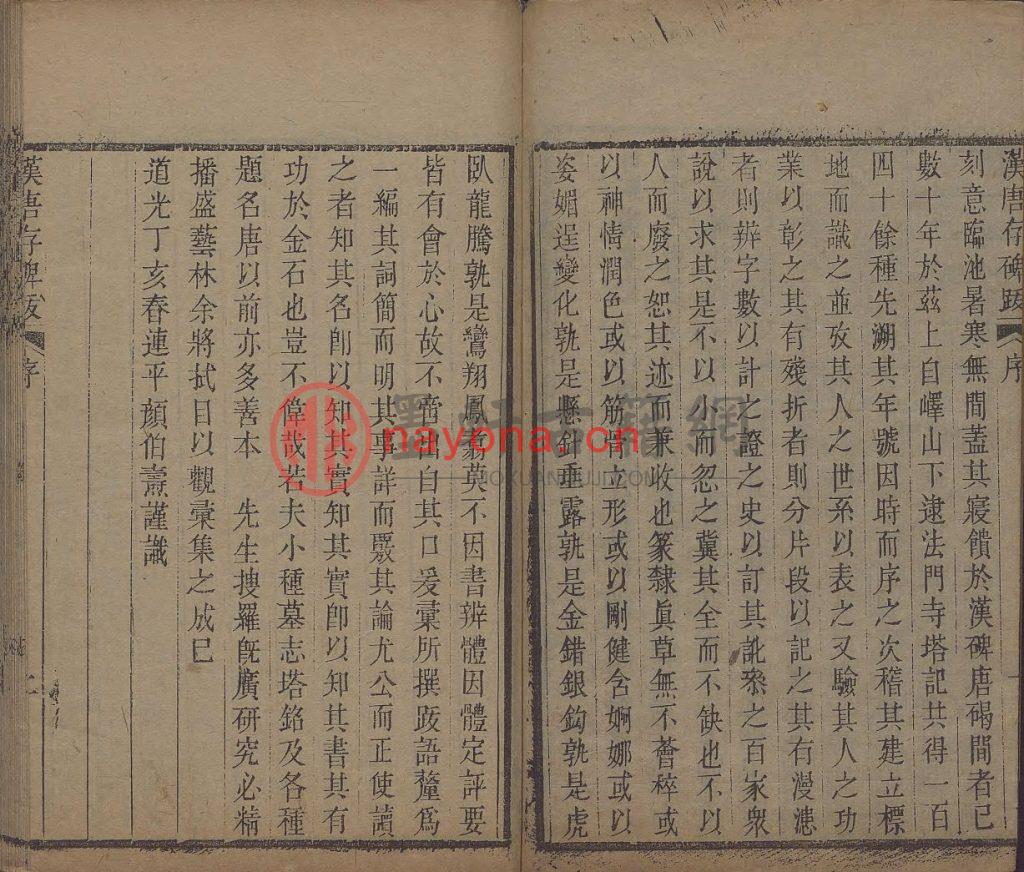 漢唐存碑跋 序
刻意臨池暑寒無間蓋其寢饋於漢碑唐碣間者已
數十年於茲上自嶧山下逮法門寺塔記共得一百
四十餘種先溯其年號因時而序之次稽其建立標
地而識之並攷其人之世系以表之又驗其人之功
業以彰之其有殘折者則分片段以記之其有漫漶
者則辨字數以計之證之史以訂其訛叅之百家衆
說以求其是不以小而忽之冀其全而不缺也不以
人而廢之恕其迹而兼收也篆隸眞草無不薈稡或
以神情潤色或以筋骨立形或以剛健含婀娜或以
姿媚逞變化孰是懸針垂露孰是金錯銀鈎孰是虎
臥龍騰孰是鸞翔鳳翥莫不因書辨體因體定評要
皆有會於心故不啻出自其口爰彙所撰跋語釐爲
一編其詞簡而明其事詳而覈其論尤公而正使讀
之者知其名卽以知其實知其實卽以知其書其有
功於金石也豈不偉哉若夫小種墓志塔銘及各種
題名唐以前亦多善本 先生搜羅旣廣研究必精
播盛藝林余將拭目以觀彙集之成已
道光丁亥春連平顏伯燾謹識
漢唐存碑跋 序 二
nayona.cn
墨軒古籍網
MOXUANGUJI.COM